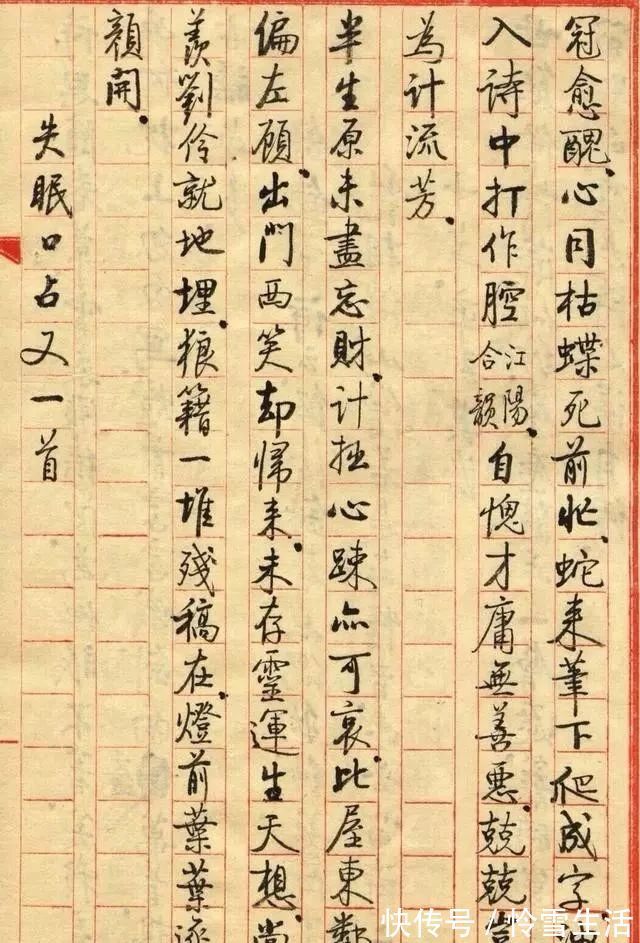 冠愈醜心同枯蝶死前忙蛇来筆下爬成字
入詩中打作腔江陽合韻自愧才庸無善惡兢兢
為計流芳
半生原未盡忘財計拙心疎亦可哀比屋東鄰
偏左顧出門西笑却帰来未存靈運生天想尚
羨劉伶就地埋狼籍一堆殘稿在燈前葉葉逐
顏開
失眠口占又一首
快传号/怜雪生活